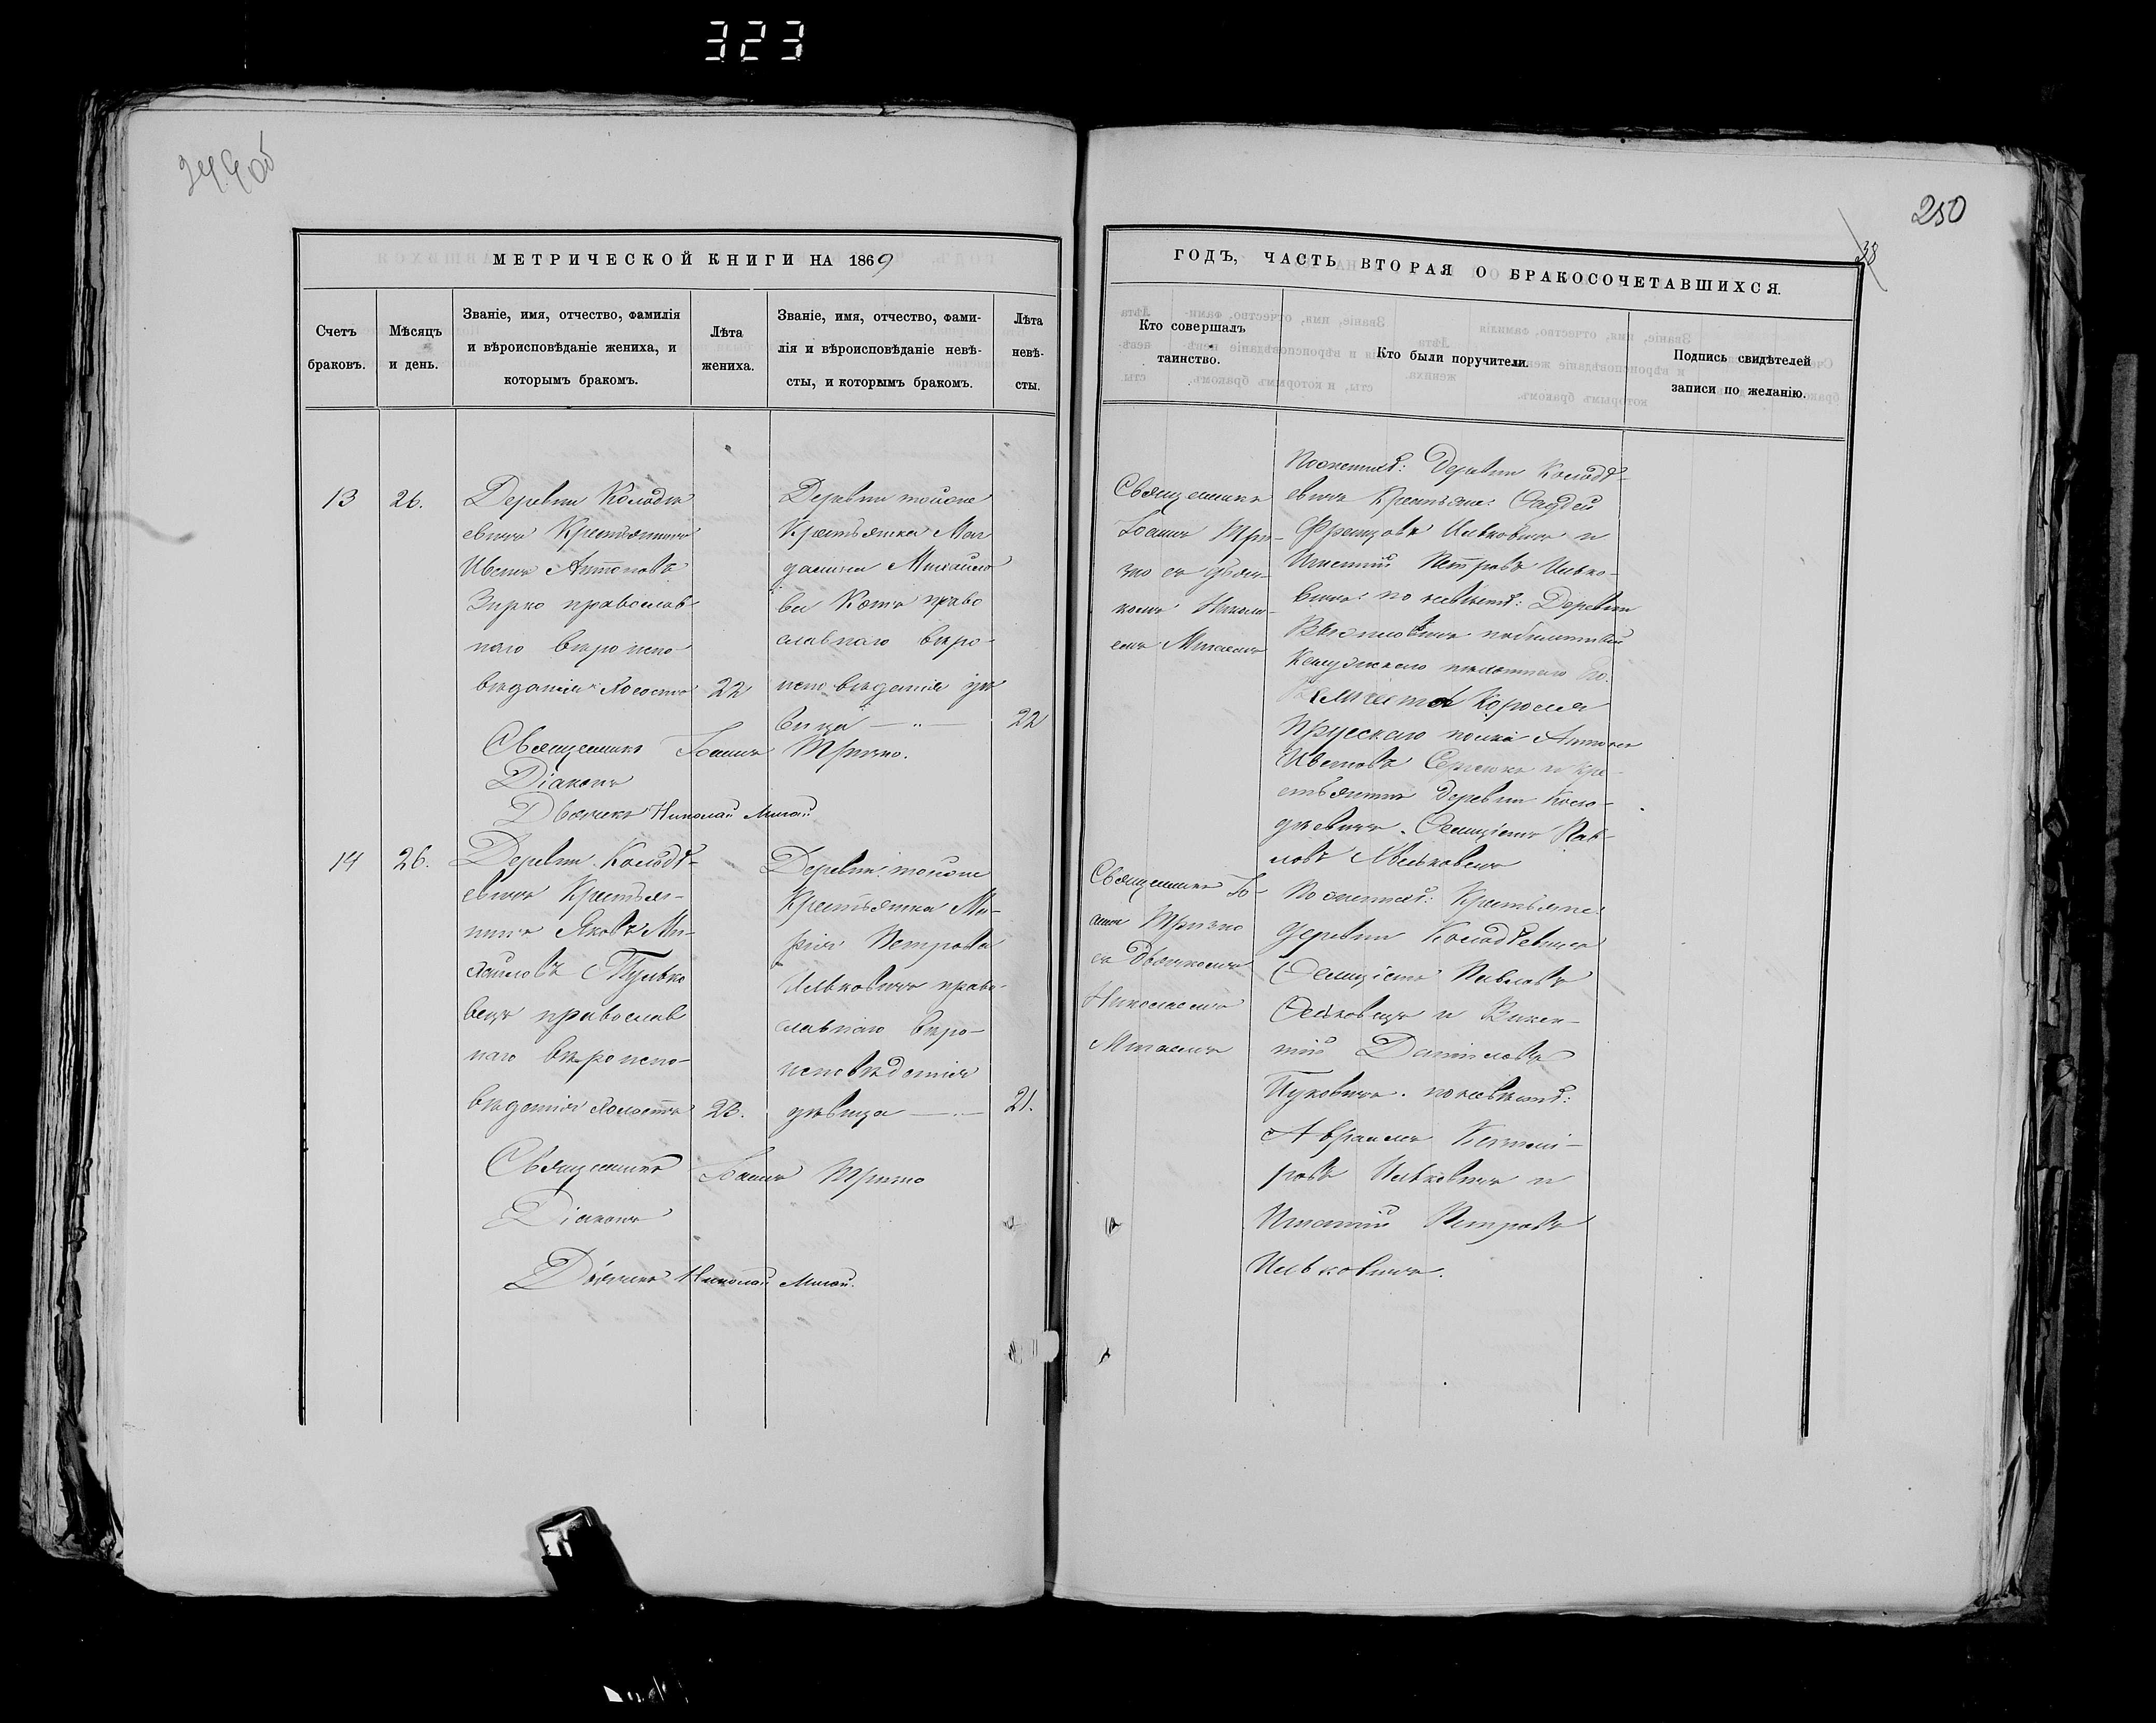 323
249 об
250
38
МЕТРИЧЕСКОЙ КНИГИ НА 1869
Счетъ браковъ.
Мѣсяцъ и день.
Званіе, имя, отчество, фамилія
и вѣроисповѣданіе жениха, и
которымъ бракомъ.
Лѣта
жениха.
Званіе, имя, отчество, фами-
лія и вѣроисповѣданіе невѣ-
сты, и которымъ бракомъ.
Лѣта
невѣ-
сты.
13
26.
Деревни Колодѣ
евичъ Крестьянинъ
Иванъ Антоновъ
Зырко православ
наго вѣроиспо
вѣданія Холостъ
22
Деревни тойже
Крестьянка Маг
далина Михайло
ва Котъ право
славнаго вѣро-
исповѣданія дѣ
вица — „ —
22
Священникъ Іоаннъ Тризно.
Діаконъ
Дьячекъ Николай Мигай
14
26.
Деревни Колодѣ-
евичъ Крестья-
нинъ Яковъ Ми-
хайловъ Пулько
православ
наго вѣроиспо-
вѣданія холостъ
23.
Деревни тойже
Крестьянка Ма-
рія Петрова
Ильковичъ право-
славнаго вѣро-
исповѣданія
дѣвица —
21.
Священникъ Іоаннъ Тризно
Діаконъ
Дьячекъ Николай Мигай.
ГОДЪ, ЧАСТЬ ВТОРАЯ О БРАКОСОЧЕТАВШИХСЯ.
Кто совершалъ
таинство.
Кто были поручители.
Подпись свидѣтелей
записи по желанію.
Священникъ
Іоаннъ Три-
зно съ дьяч-
комъ Никола-
емъ Мигаемъ
По женихѣ: Деревни Колодѣ-
евичъ Крестьяне: Фадей
Францовъ Ильковичъ и
Игнатій Петровъ Илько-
вичъ. по невѣстѣ: Деревни
Калужскаго пѣхотнаго Его
Величества Короля
Прусскаго полка Антонъ
Ивановъ и кре-
стьянинъ деревни Коло-
дѣевичъ. Фелиціанъ Пав-
ловъ
Священникъ Іо-
аннъ Тризно
съ Дьячкомъ
Николаемъ
Мигаемъ
По женихѣ: Крестьяне:
деревни Колодѣевичъ
Фелиціанъ Павловъ
и Викен-
тій Даниловъ
Пуковичъ. по невѣстѣ:
Авраамъ Казимі-
ровъ Ильковичъ и
Игнатій Петровъ
Ильковичъ.